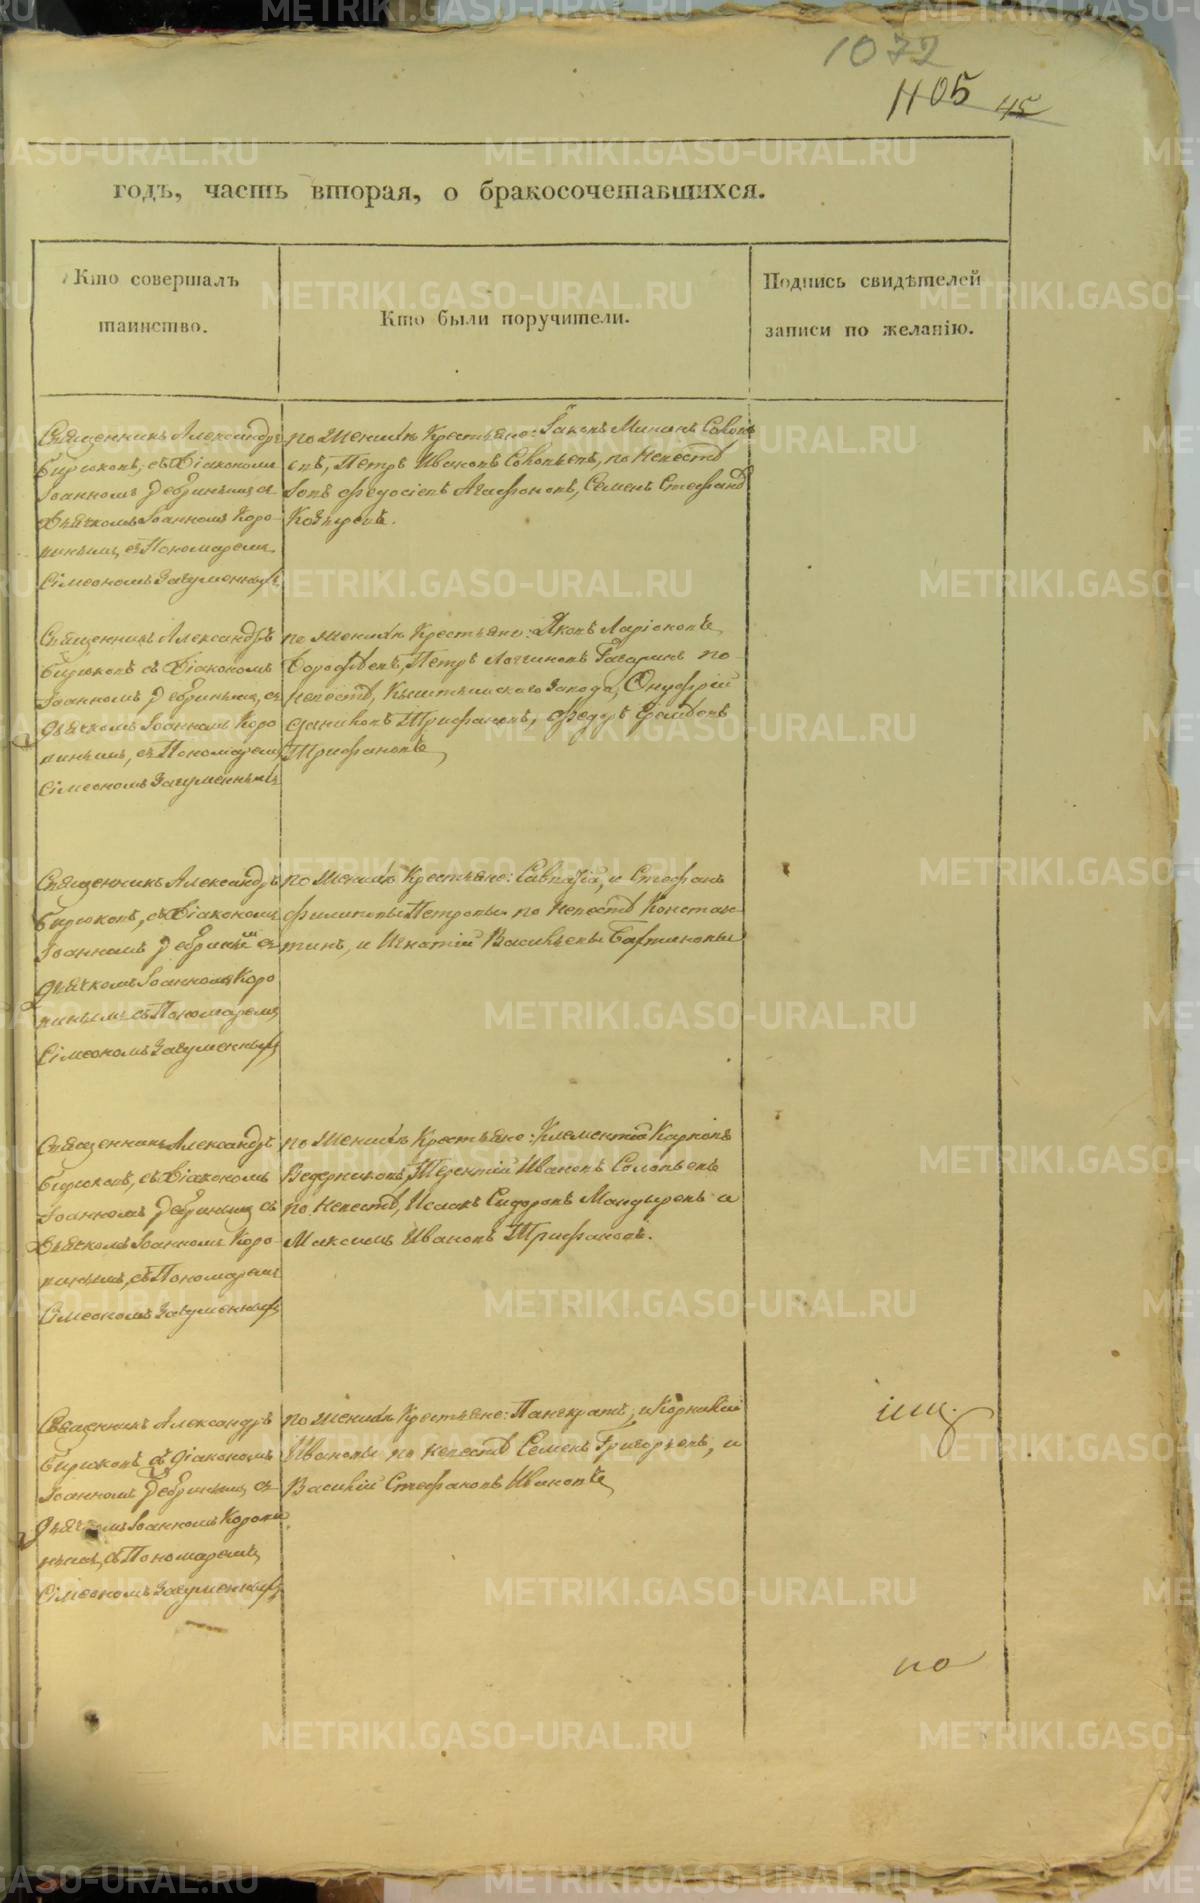 1072
1105 45
годъ, часть вторая, о бракосочетавшихся.
Кто совершалъ
таинство.
Кто были поручители.
Подпись свидѣтелей
записи по желанію.
Священникъ Александръ
Бирюковъ, съ Діакономъ
Іоанномъ
Дьячкомъ Іоанномъ Коро-
винымъ, съ Пономаремъ
Сімеономъ Загуменнымъ
по женихѣ Крестьяне: Іаковъ Мининъ Соловь
евъ, Петръ Ивановъ Соловьевъ, по невестѣ
Іовъ Федосіевъ Агафоновъ, Семенъ Стефановъ
Козыревъ.
Священникъ Александръ
Бирюковъ съ Діакономъ
Іоанномъ
дьячкомъ Іоанномъ Коро
винымъ, съ Пономаремъ
Сімеономъ Загуменнымъ
по женихѣ Крестьяне: Яковъ Ларіоновъ
Дорофѣевъ, Петръ Логгиновъ Гагаринъ по
невестѣ, Кыштымскаго Завода, Онуфрій
Трифановъ, Федоръ
Трифановъ
Священникъ Александръ
Бирюковъ, съ Діакономъ
Іоанномъ
дьячкомъ Іоанномъ Коро
винымъ съ Пономаремъ
Сімеономъ Загуменнымъ
по женихѣ Крестьяне: Савватій, и Стефанъ
Филиповы Петровы по невестѣ Констан-
тинъ, и Игнатій Васильевы
Священникъ Александръ
Бирюковъ, съ Діакономъ
Іоанномъ
Дьячкомъ Іоанномъ Коро-
винымъ, съ Пономаремъ
Сімеономъ Загуменнымъ
по женихѣ Крестьяне: Клементій Карповъ
Ведерниковъ, Терентій Ивановъ Соловьевъ
по невестѣ, Исаакъ Сидоровъ Мандыревъ и
Максимъ Ивановъ Трифановъ.
Священникъ Александръ
Бирюковъ съ діакономъ
Іоанномъ
дьячкомъ Іоанномъ Корови
нымъ, съ Пономаремъ
Сімеономъ Загуменнымъ
по женихѣ Крестьяне: Панкратъ, и Корнилій
Ивановы по невестѣ Семенъ Григорьевъ, и
Василій Стефановъ Ивановъ
по
METRIKI.GASO-URAL.RU